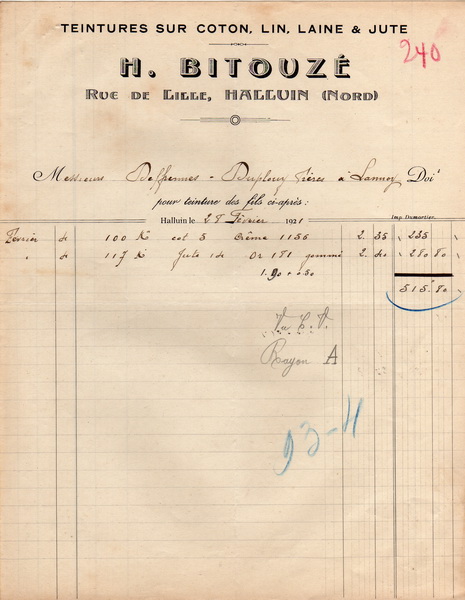 TEINTURES SUR COTON, LIN, LAINE & JUTE
240
H. BITOUZÉ
RUE DE LILLE, HALLUIN (NORD)
Messieurs Delfennes - Duplouy frères à Lannoy Doit
pour teinture des fils ci-après :
Imp. Dumortier.
Halluin le 28 Février 1921
Février 100 K cot 3 Crème 1156 2.35 235
" 117 K Jute 14 Or 181 gommé 2.40 280 80
1.90 + 0.50
515.80
Vu
Rayon A
93-11